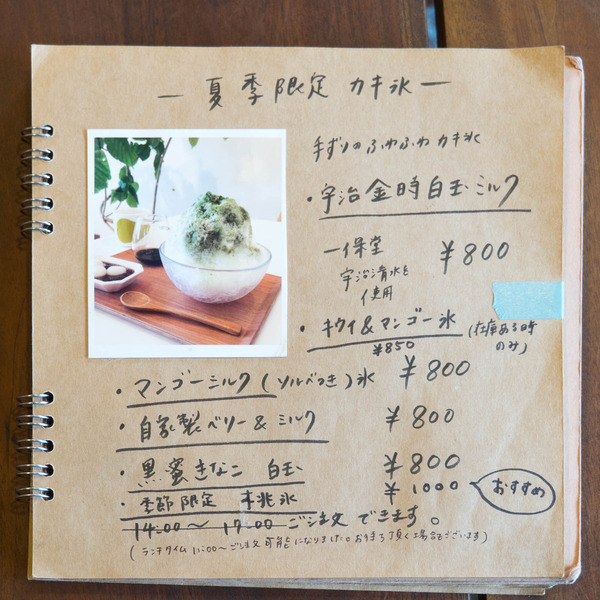 — 夏季限定 カキ氷 —
手ずりのふわふわカキ氷
・宇治金時白玉ミルク
一保堂 ¥800
宇治清水を
使用
・キウイ&マンゴー氷 (在庫ある時
のみ)
¥850
・マンゴーミルク(ソルベつき)氷 ¥800
・自家製ベリー&ミルク ¥800
・黒蜜きなこ 白玉 ¥800
・季節限定 桃氷 ¥1000 おすすめ
14:00〜17:00 ご注文できます。
(ランチタイム 11:00〜ご注文可能になりました。お待ち頂く場合もございます)